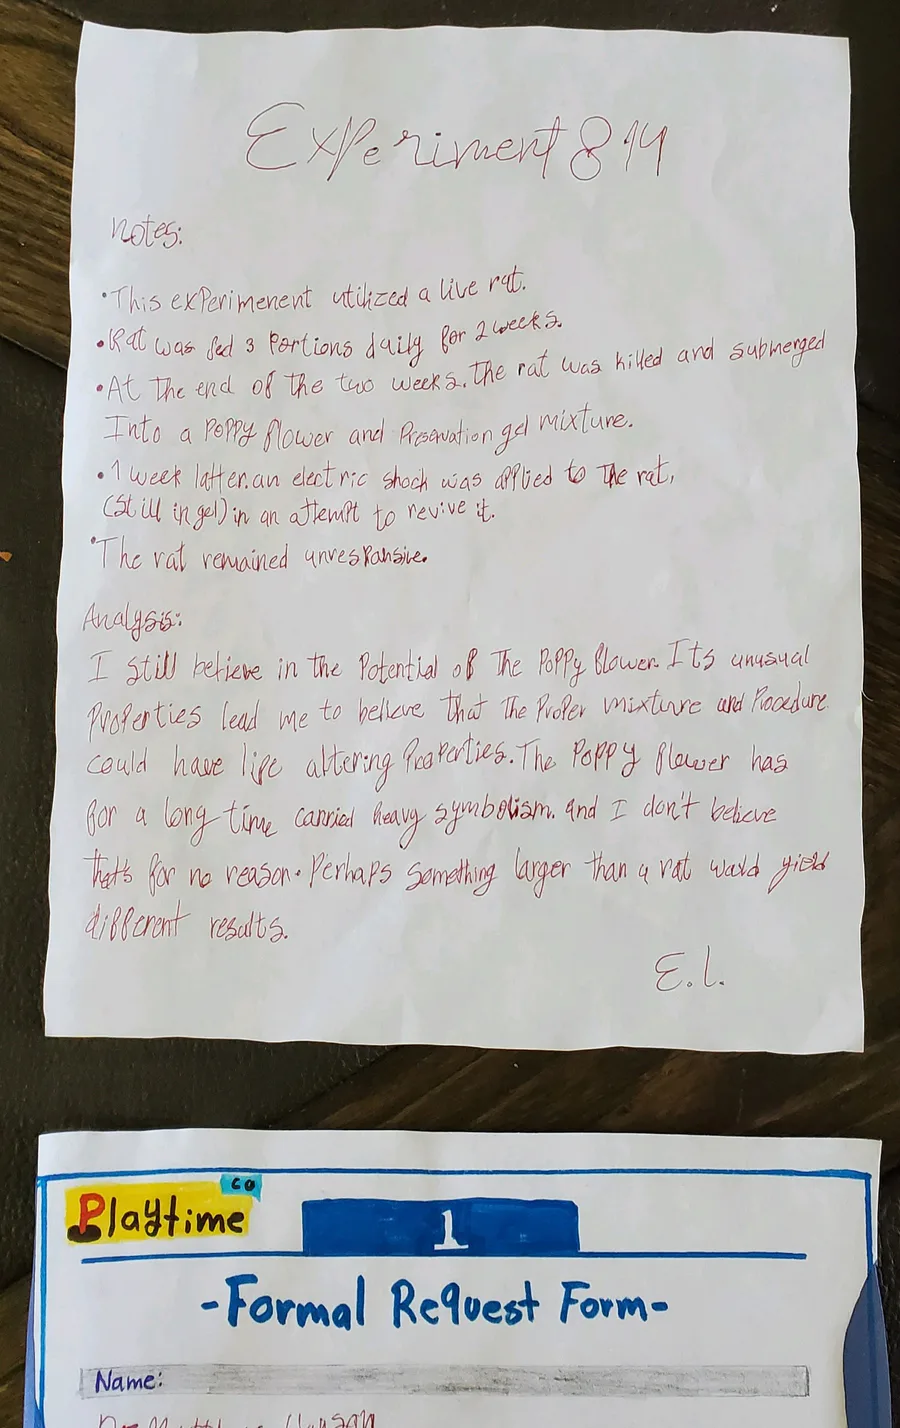 Experiment 814
Notes:
• This experimenent utilized a live rat.
• Rat was fed 3 portions daily for 2 weeks.
• At the end of the two weeks. The rat was killed and submerged
Into a poppy flower and Preservation gel mixture.
• 1 week latter. an electric shock was applied to the rat,
(Still in gel) in an attempt to revive it.
• The rat remained unresponsive.
Analysis:
I still believe in the Potential of The Poppy flower. Its unusual
Properties lead me to believe that The Proper mixture and Procedure
could have life altering Properties. The Poppy flower has
for a long time carried heavy symbolism. and I don't believe
that's for no reason. Perhaps Something larger than a rat would yield
different results.
E.L.
Playtime co
1
-Formal Request Form-
Name: